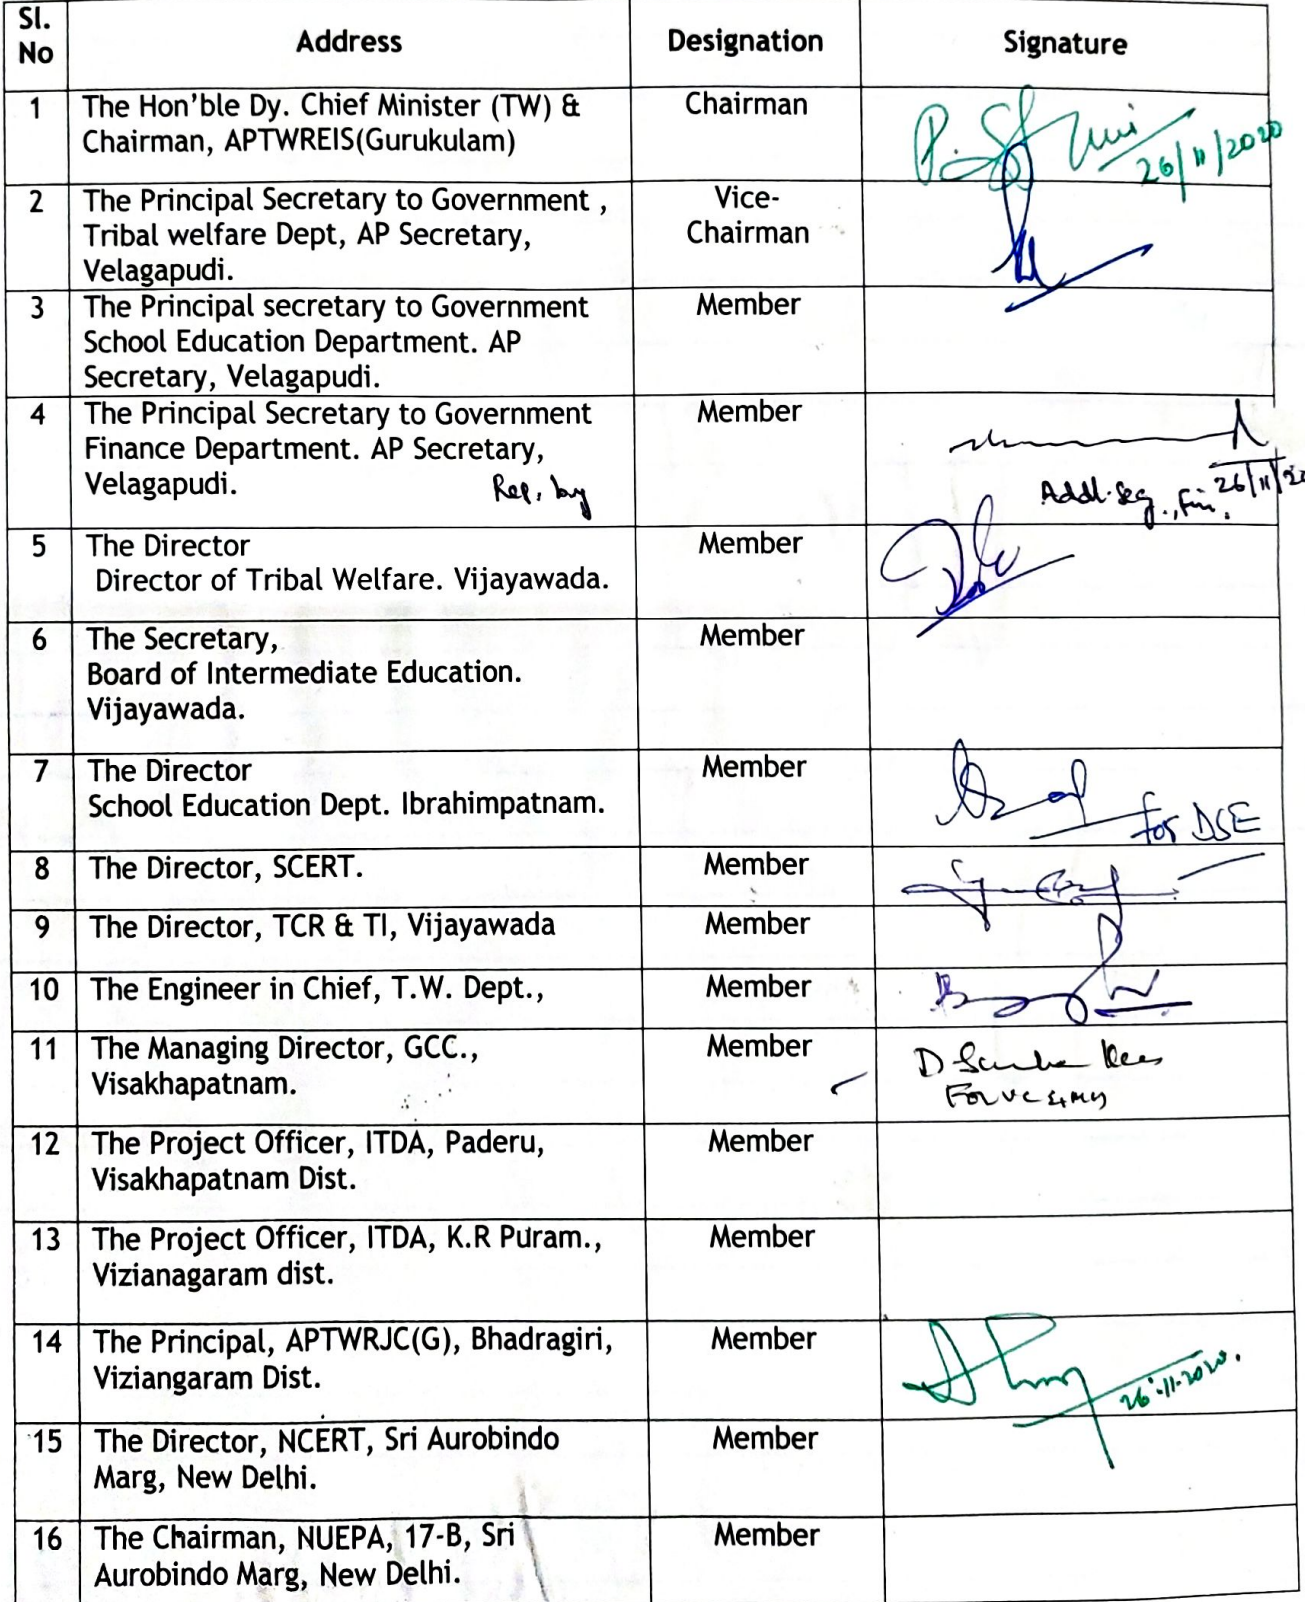 Sl. No
Address
Designation
Signature
1
The Hon'ble Dy. Chief Minister (TW) &
Chairman, APTWREIS(Gurukulam)
Chairman
26/11/2020
2
The Principal Secretary to Government ,
Tribal welfare Dept, AP Secretary,
Velagapudi.
Vice-
Chairman
3
The Principal secretary to Government
School Education Department. AP
Secretary, Velagapudi.
Member
4
The Principal Secretary to Government
Finance Department. AP Secretary,
Velagapudi.
Rep. by
Member
26/11/20
Addl. Secy., Fin.
5
The Director
Director of Tribal Welfare. Vijayawada.
Member
6
The Secretary,
Board of Intermediate Education.
Vijayawada.
Member
7
The Director
School Education Dept. Ibrahimpatnam.
Member
for DSE
8
The Director, SCERT.
Member
9
The Director, TCR & TI, Vijayawada
Member
10
The Engineer in Chief, T.W. Dept.,
Member
11
The Managing Director, GCC.,
Visakhapatnam.
Member
For VC & MD
12
The Project Officer, ITDA, Paderu,
Visakhapatnam Dist.
Member
13
The Project Officer, ITDA, K.R Puram.,
Vizianagaram dist.
Member
14
The Principal, APTWRJC(G), Bhadragiri,
Viziangaram Dist.
Member
26-11-2020.
15
The Director, NCERT, Sri Aurobindo
Marg, New Delhi.
Member
16
The Chairman, NUEPA, 17-B, Sri
Aurobindo Marg, New Delhi.
Member